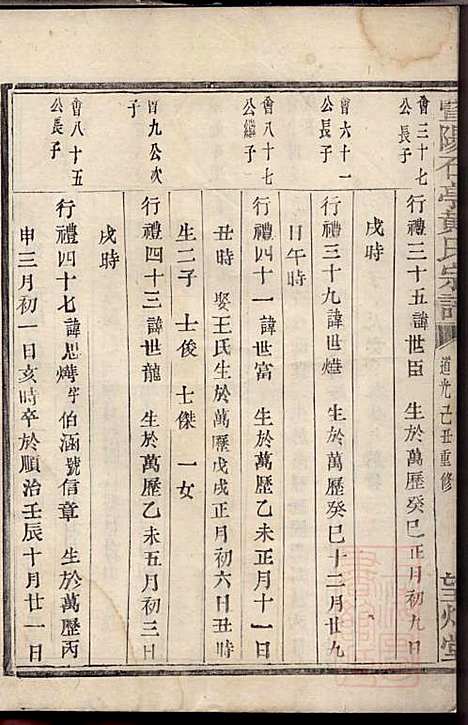 豐陽石亭黃氏宗譜
道光己丑重修
會三十七公長子
行禮三十五諱世臣 生於萬歷癸巳正月初九日
戌時
會六十一公長子
行禮三十九諱世燁 生於萬歷癸巳十二月廿九
日午時
會八十七公繼子
行禮四十一諱世富 生於萬歷乙未正月十一日
丑時 娶王氏生於萬歷戊戌正月初六日丑時
生二子 士俊 士傑 一女
曾九公次子
行禮四十三諱世龍 生於萬歷乙未五月初三日
戌時
會八十五公長子
行禮四十七諱思燁字伯涵號信章 生於萬歷丙
申三月初一日亥時卒於順治壬辰十月廿一日